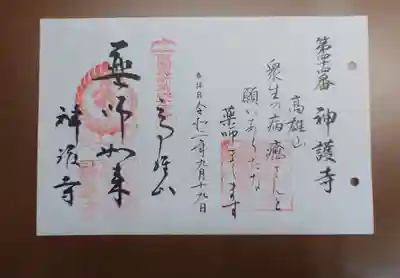 第四十四番 神護寺
高雄山
衆生の病癒さんと
願いあらたな
薬師まします
奉拝日 令和二年九月十九日
高雄山
薬師如来
神護寺